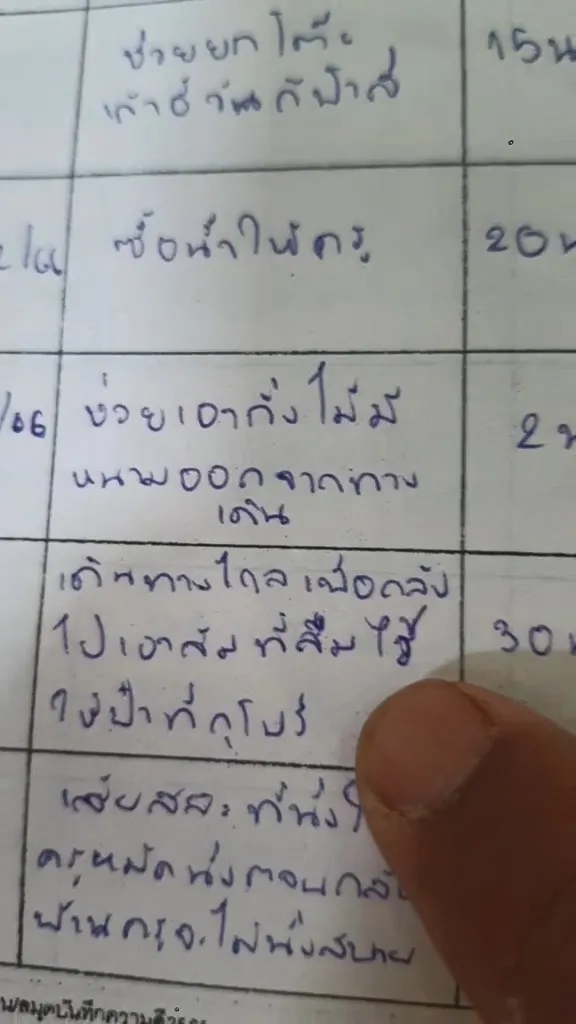 ช่วยยกโต๊ะ 15น
เก้าอี้วันกีฬาสี
2/66 ซื้อน้ำให้ครู 20น
/66 ช่วยเอากิ่งไม้มี 2น
หนามออกจากทาง
เดิน
เดินทางไกลเพื่อกลับ
ไปเอาส้มที่ลืมไว้ 30น
ให้ป้าที่กุโบร์
เสียสละที่นั่ง
ครูหมัดนั่งตอนกลับ
บ้านครูจะไม่นั่งสบาย
สมุดบันทึกความดี